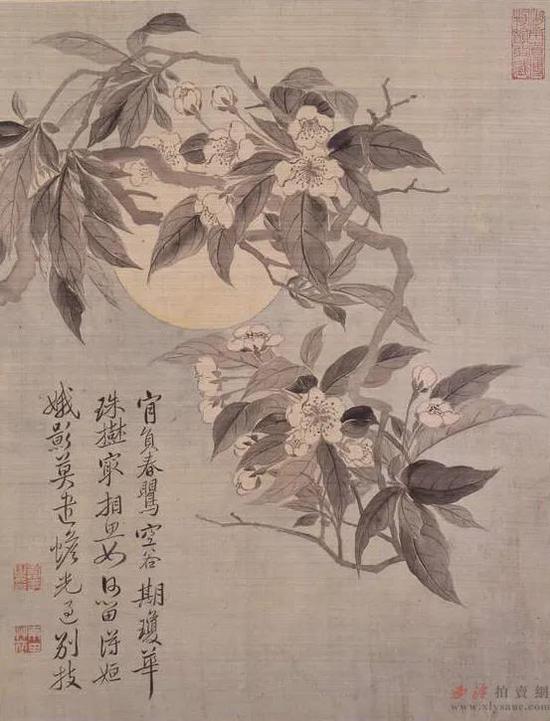 肯負春鸎空谷期瓊華
珠樹㝡相思何留得姮
娥影莫遣蟾光過別枝
西泠拍賣網
www.xlysauc.com